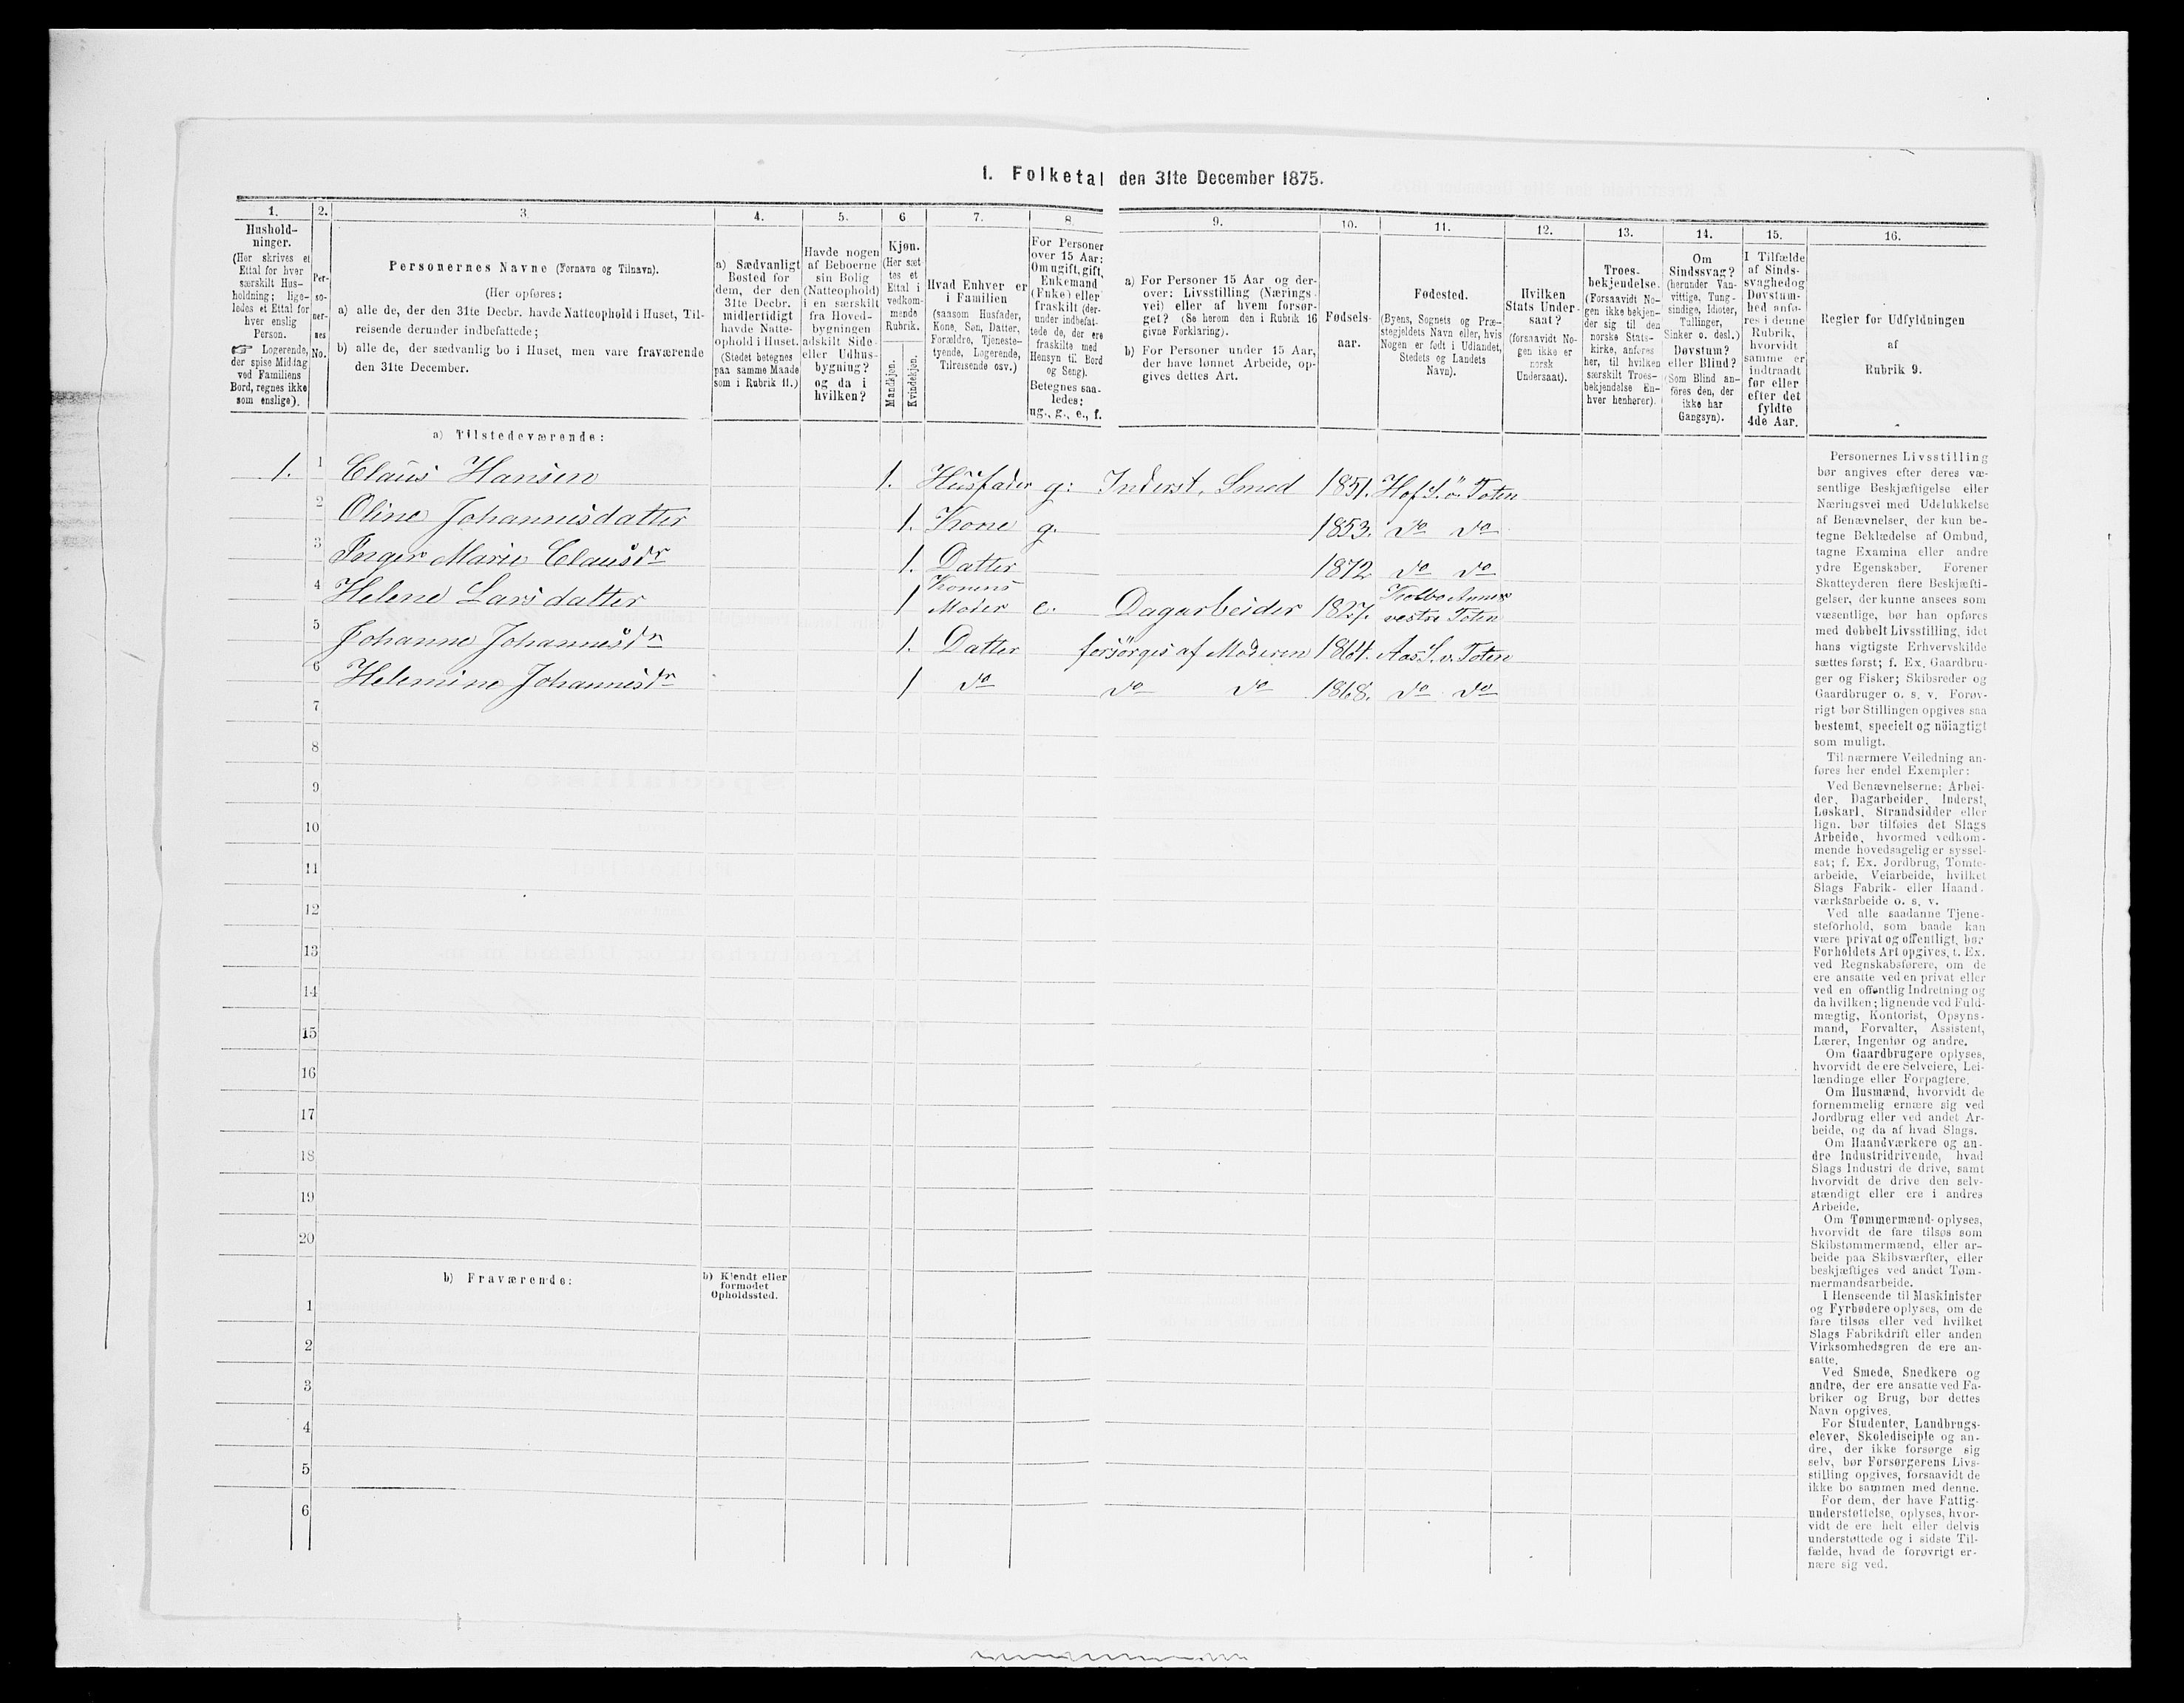 1. Folketal den 31te December 1875.
1. 2. 3. 4. 5. 6 7. 8. 9. 10. 11. 12. 13. 14. 15. 16.
Hushold-
ninger.
(Her skrives et
Ettal for hver
særskilt Hus-
holdning; lige-
ledes et Ettal for
hver enslig
Person.
☞ Logerende,
der spise Middag
ved Familiens
Bord, regnes ikke
som enslige).
Per-
so-
ner-
nes
No.
Personernes Navne (Fornavn og Tilnavn).
(Her opføres:
a) alle de, der den 31te Decbr. havde Natteophold i Huset, Til-
reisende derunder indbefattede;
b) alle de, der sædvanlig bo i Huset, men vare fraværende
den 31te December.
a) Sædvanligt
Bosted for
dem, der den
31te Decbr.
midlertidigt
havde Natte-
ophold i Huset.
(Stedet betegnes
paa samme Maade
som i Rubrik 11.)
Havde nogen
af Beboerne
sin Bolig
(Natteophold)
i en særskilt
fra Hoved-
bygningen
adskilt Side-
eller Udhus-
bygning?
og da i
hvilken?
Kjøn.
(Her sæt
tes et
Ettal i
vedkom-
mende
Rubrik.
Mandkjøn.
Kvindekjøn.
Hvad Enhver er
i Familien
(saasom Husfader,
Kone, Søn, Datter,
Forældre, Tjeneste-
tyende, Logerende,
Tilreisende osv.)
For Personer
over 15 Aar:
Om ugift, gift,
Enkemand
(Enke) eller
fraskilt (der-
under indbefat-
tede de, der ere
fraskilte med
Hensyn til Bord
og Seng).
Betegnes saa-
ledes:
ug., g., e., f.
a) For Personer 15 Aar og der-
over: Livsstilling (Nærings-
vei) eller af hvem forsør-
get? (Se herom den i Rubrik 16
givne Forklaring).
b) For Personer under 15 Aar,
der have lønnet Arbeide, op-
gives dettes Art.
Fødsels-
aar.
Fødested.
(Byens, Sognets og Præ-
stegjeldets Navn eller, hvis
Nogen er født i Udlandet,
Stedets og Landets
Navn).
Hvilken
Stats Under-
saat?
(forsaavidt No-
gen ikke er
norsk
Undersaat).
Troes-
bekjendelse.
(Forsaavidt No-
gen ikke bekjen-
der sig til den
norske Stats-
kirke, anføres
her, til hvilken
særskilt Troes-
bekjendelse En-
hver henhører).
Om
Sindssvag?
(herunder Van-
vittige, Tung-
sindige, Idioter,
Tullinger,
Sinker o. desl.)
Døvstum?
eller Blind?
(Som Blind an-
føres den, der
ikke har
Gangsyn).
I Tilfælde
af Sinds-
svaghed og
Døvstum-
hed anfø-
res i denne
Rubrik,
hvorvidt
samme er
indtraadt
før eller
efter det
fyldte
4de Aar.
Regler for Udfyldningen
af
Rubrik 9.
a) Tilstedeværende:
1. 1 Claus Hansen 1. Husfader g: Inderst, Smed 1851. Hof S. ö. Toten
2 Oline Johannisdatter 1. Kone g. 1853. do do
3 Inger Marie Clausdr 1. Datter 1872 do do
4 Helene Larsdatter 1 Konens Moder e. Dagarbeider 1827. Kolbo Annex vestre Toten
5 Johanne Johannisdr 1. Datter forsörges af Moderen 1864. Aas S. v. Toten
6 Helemine Johannisdr 1 do do do 1868. do do
7
8
9
10
11
12
13
14
15
16
17
18
19
20
b) Fraværende:
b) Kjendt eller
formodet
Opholdssted.
1
2
3
4
5
6
Personernes Livsstilling
bør angives efter deres væ-
sentlige Beskjæftigelse eller
Næringsvei med Udelukkelse
af Benævnelser, der kun be-
tegne Beklædelse af Ombud,
tagne Examina eller andre
ydre Egenskaber. Forener
Skatteyderen flere Beskjæfti-
gelser, der kunne ansees som
væsentlige, bør han opføres
med dobbelt Livsstilling, idet
hans vigtigste Erhvervskilde
sættes først; f. Ex. Gaardbru-
ger og Fisker; Skibsreder og
Gaardbruger o. s. v. Forøv-
rigt bør Stillingen opgives saa
bestemt, specielt og nöiagtigt
som muligt.
Til nærmere Veiledning an-
føres her endel Exempler:
Ved Benævnelserne: Arbei-
der, Dagarbeider, Inderst,
Løskarl, Strandsidder eller
lign. bør tilføies det Slags
Arbeide, hvormed vedkom-
mende hovedsagelig er syssel-
sat; f. Ex. Jordbrug, Tomte-
arbeide, Veiarbeide, hvilket
Slags Fabrik- eller Haand-
værksarbeide o. s. v.
Ved alle saadanne Tjene-
steforhold, som baade kan
være privat og offentligt, bør
Forholdets Art opgives, f. Ex.
ved Regnskabsførere, om de
ere ansatte ved en privat eller
ved en offentlig Indretning og
da hvilken; lignende ved Fuld-
mægtig, Kontorist, Opsyns-
mand, Forvalter, Assistent,
Lærer, Ingeniør og andre.
Om Gaardbrugere oplyses,
hvorvidt de ere Selveiere, Lei-
lændinge eller Forpagtere.
Om Husmænd, hvorvidt de
fornemmelig ernære sig ved
Jordbrug eller ved andet Ar-
beide, og da af hvad Slags.
Om Haandværkere og an-
dre Industridrivende, hvad
Slags Industri de drive, samt
hvorvidt de drive den selv-
stændigt eller ere i andres
Arbeide.
Om Tømmermænd oplyses,
hvorvidt de fare tilsøs som
Skibstømmermænd, eller ar-
beide paa Skibsværfter, eller
beskjæftiges ved andet Tøm-
mermandsarbeide.
I Henseende til Maskinister
og Fyrbødere oplyses, om de
fare tilsøs eller ved hvilket
Slags Fabrikdrift eller anden
Virksomhedsgren de ere an-
satte.
Ved Smede, Snedkere og
andre, der ere ansatte ved Fa-
briker og Brug, bør dettes
Navn opgives.
For Studenter, Landbrugs-
elever, Skoledisciple og an-
dre, der ikke forsørge sig
selv, bør Forsørgerens Livs-
stilling opgives, forsaavidt de
ikke bo sammen med denne.
For dem, der have Fattig-
understøttelse, oplyses, hvor-
vidt de ere helt eller delvis
understøttede og i sidste Til-
fælde, hvad de forøvrigt er-
nære sig ved.